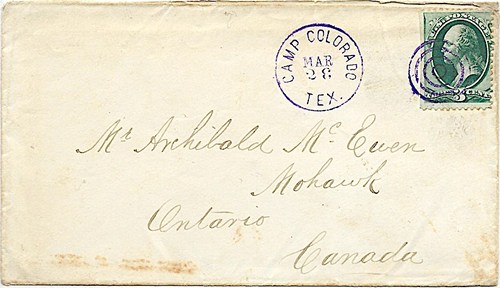 CAMP COLORADO
MAR
28
TEX.
3
Mr Archibald McEwen
Mohawk
Ontario
Canada